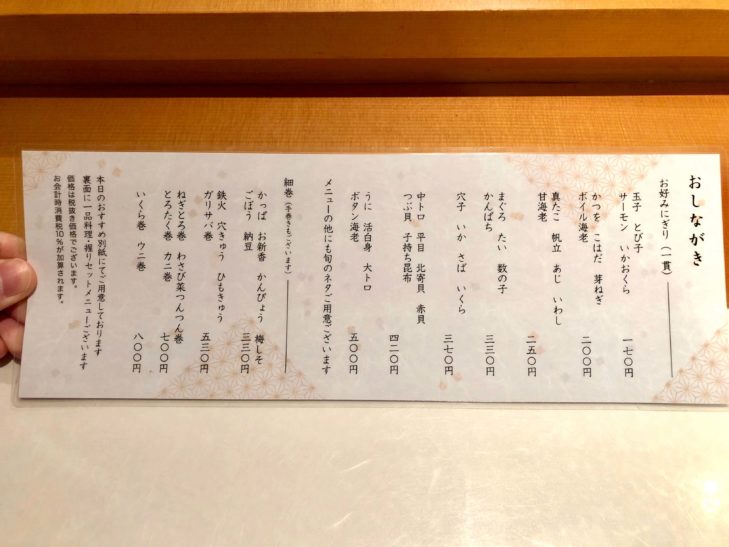 おしながき
お好みにぎり（一貫）
玉子 とび子
サーモン いかおくら 一七〇円
かつを こはだ 芽ねぎ
ボイル海老 二〇〇円
真たこ 帆立 あじ いわし
甘海老 二五〇円
まぐろ たい 数の子
かんぱち 三三〇円
穴子 いか さば いくら 三七〇円
中トロ 平目 北寄貝 赤貝
つぶ貝 子持ち昆布 四二〇円
うに 活白身 大トロ
ボタン海老 五〇〇円
メニューの他にも旬のネタご用意ございます
細巻（手巻きもございます）
かっぱ お新香 かんぴょう 梅しそ
ごぼう 納豆 三三〇円
鉄火 穴きゅう ひもきゅう
ガリサバ巻 五三〇円
ねぎとろ巻 わさび菜つんつん巻
とろたく巻 カニ巻 七〇〇円
いくら巻 ウニ巻 八〇〇円
本日のおすすめ別紙にてご用意しております
裏面に一品料理・握りセットメニューございます
価格は税抜き価格でございます。
お会計時消費税10%が加算されます。